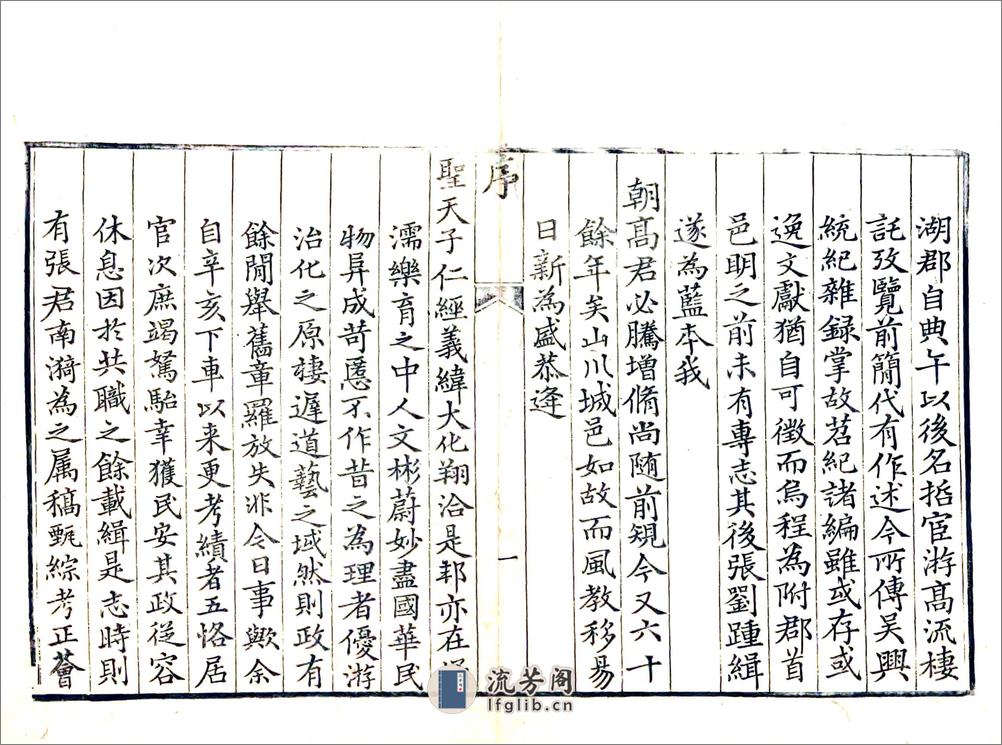 湖郡自典午以後名掋宦游髙流棲
託攷覽前簡代有作述今所傳吴興
統紀雜録掌故苕紀諸編雖或存或
逸文獻猶自可徵而烏程為附郡首
邑明之前未有專志其後張劉踵緝
遂為藍本我
朝髙君必騰增脩尚随前規今又六十
餘年矣山川城邑如故而風教移易
日新為盛恭逢
序
一
聖天子仁經義緯大化翔洽是邦亦在
濡樂育之中人文彬蔚妙盡國華民
物昇成苛慝不作昔之為理者優游
治化之原棲遲道藝之域然則政有
餘閒舉舊章羅放失非今日事歟余
自辛亥下車以来更考績者五恪居
官次庶竭駑駘幸獲民安其政從容
休息因於共職之餘載緝是志時則
有張君南漪為之属稿甄綜考正薈
流芳阁
lfglib.cn